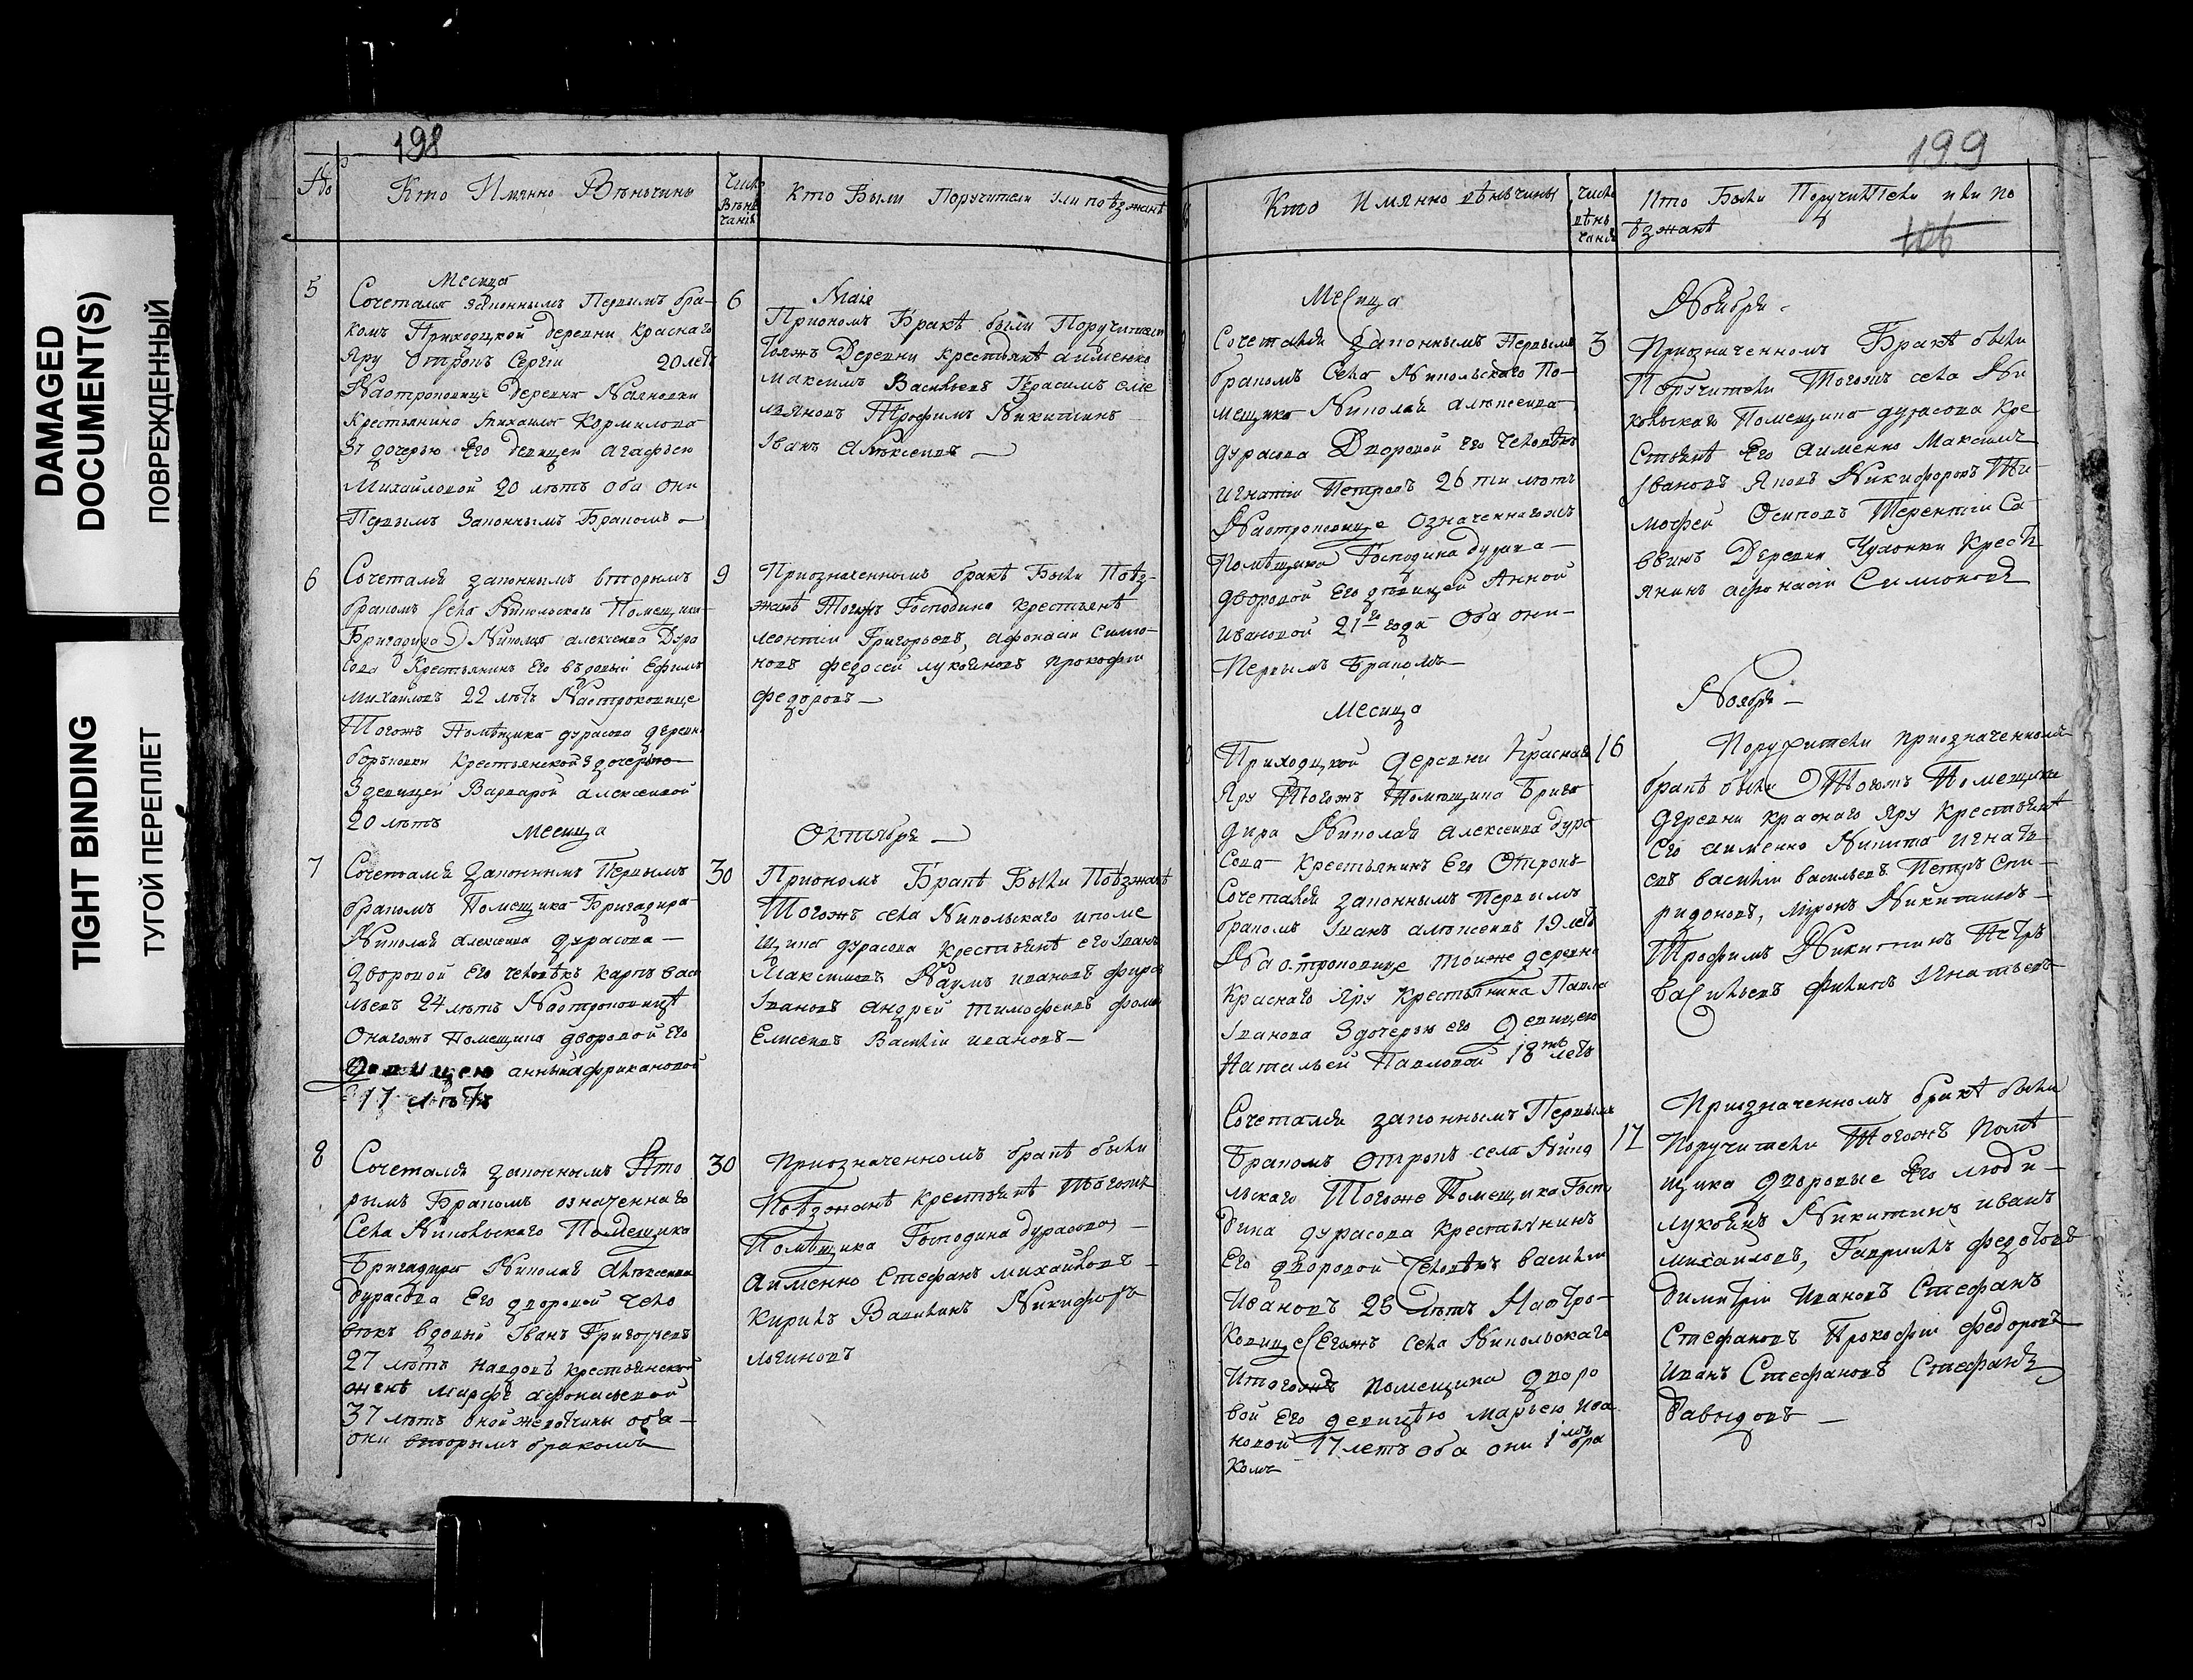 DAMAGED
DOCUMENT(S)
ПОВРЕЖДЕННЫЙ
TIGHT BINDING
ТУГОЙ ПЕРЕПЛЕТ
198
№
Кто Имянно Веньчины
Число
Вень
чанія
Кто Были Поручители или поѣзжанѣ
5
Месяца
Сочетался законнымъ Первымъ бра-
комъ Приходцкой деревни Краснаго
Яру отрокъ Сергій 20 летъ
Наотроковице деревни
крестьянина Михаила Кормилова
Здочерью Его девицей агафьею
Михайловой 20 лѣтъ оба они
Первымъ Законнымъ Бракомъ
6
Маіе
Приономъ Бракѣ были Поручители
тояжъ Деревни крестьянѣ аименно
Максимъ Васильевъ Герасимъ еме
льяновъ Трофимъ Никитинъ
Іванъ Алѣксеевъ
6
Сочетался законнымъ вторымъ
бракомъ Села Никольскаго Помещика
Бригадира Николая алексеева Дура
сова Крестьянинъ Его вдовый Ефимъ
михайловъ 22 лѣтъ Наотроковице
Тогожъ Помѣщика дурасова деревни
крестьянской здочерью
Здевицей Варварой алексеевой
20 лѣтъ
9
Приозначенномъ бракѣ Были Поѣз-
жанѣ Тогожъ Господина крестьянѣ
леонтій Григорьевъ, афонасій Симио-
новъ федосей лукояновъ прокофій
федоровъ
Месяца
Октября
7
Сочетался Законнымъ Первымъ
бракомъ Помещика Бригадира
Николая алексеева дурасова
дворовой Его человѣкъ карпъ васи
льевъ 24 лѣтъ Наотроковицѣ
Онагожъ Помещика дворовой Его
Девицею анныафрикановой
17 лѣтъ
30
Приономъ Бракѣ Были Поѣзжанѣ
Тогожъ села Никольскаго ипоме
щика дурасова крестьянѣ его Іванъ
Максимовъ Наумъ ивановъ фирсъ
Івановъ андрей тимофеевъ фома
Елисеевъ Василій ивановъ
8
Сочетался законнымъ Вто
рымъ Бракомъ означеннаго
Села Никольскаго Помещика
Бригадира Николая Алѣксеева
дурасова Его дворовой чело
векъ вдовый Іванъ Григорьевъ
27 лѣтъ навдовѣ крестьянской
женѣ марфѣ афонасьевой
37 лѣтъ оба
они вторымъ бракомъ
30
Приозначенномъ бракѣ были
Поѣзжанѣ крестьянѣ тогожъ
Помѣщика Господина дурасова
аименно Стефанъ михайловъ
Кирилъ Никифоръ
логиновъ
199
106
Кто Имянно вѣньчины
Число
вѣнь
чанія
Кто Были Поручители или по
ѣзжанѣ
Месяца
Ноября
Сочетался Законнымъ Первымъ
бракомъ Села Никольскаго По-
мещика Николая алѣксеева
дурасова Дворовой его человѣкъ
игнатій Петровъ 26 ти лѣтъ
Наотроковице Означенагожъ
Помѣщика Господина дурасова
дворовой Его девицей Анной
ивановой 21го года Оба они
Первымъ Бракомъ
3
Приозначенномъ Бракѣ были
Поручители Тогожъ села Ни
кольскаго Помещика дурасова кре
стьянѣ Его аименно Максимъ
Івановъ Яковъ Никифоровъ Ти-
мофей Осиповъ Терентій Са
ввинъ Деревни Чудовки Крестья
янинъ афонасій Симионовъ
Месяца
Ноября
Приходцкой деревни Краснаго
Яру Тогожъ Помещика Брига
дира Николая Алексеева дура
сова крестьянинъ Его Отрокъ
Сочетался законнымъ Первымъ
бракомъ Іванъ алѣксеевъ 19 летъ
Наотроковице тойже деревни
Краснаго Яру Крестьянина Павла
Іванова Здочерью его девицею
Натальей Павловой 18ть летъ
16
Поручители приозначенномъ
бракѣ были Тогожъ Помещика
деревни краснаго Яру Крестьянѣ
Его аименно Никита игнатье
евъ василій васильевъ Петръ Спи-
ридоновъ, миронъ Никитинъ
Трофимъ Никитинъ Петръ
Васильевъ филипъ Игнатьевъ
Сочетался законнымъ Первымъ
Бракомъ Отрокъ села Нико
льскаго Тогоже Помещика Госпо
дина дурасова Крестьянинъ
Его дворовой человѣкъ василій
Ивановъ 25 лѣтъ Наотро-
ковице Сегожъ села Никольскаго
Итогожъ помещика дворо
вой Его девицею марьею ива
новой 17 летъ оба они 1мъ бра
комъ
17
Приозначенномъ бракѣ были
Поручители Тогожъ помѣ
щика дворовые Его люди
лукоянъ Никитинъ иванъ
михайловъ, Гаврилъ федотовъ
димитрій Ивановъ Стефанъ
Стефановъ Прокофій федоровъ
Иванъ Стефановъ Стефанъ
Давыдовъ